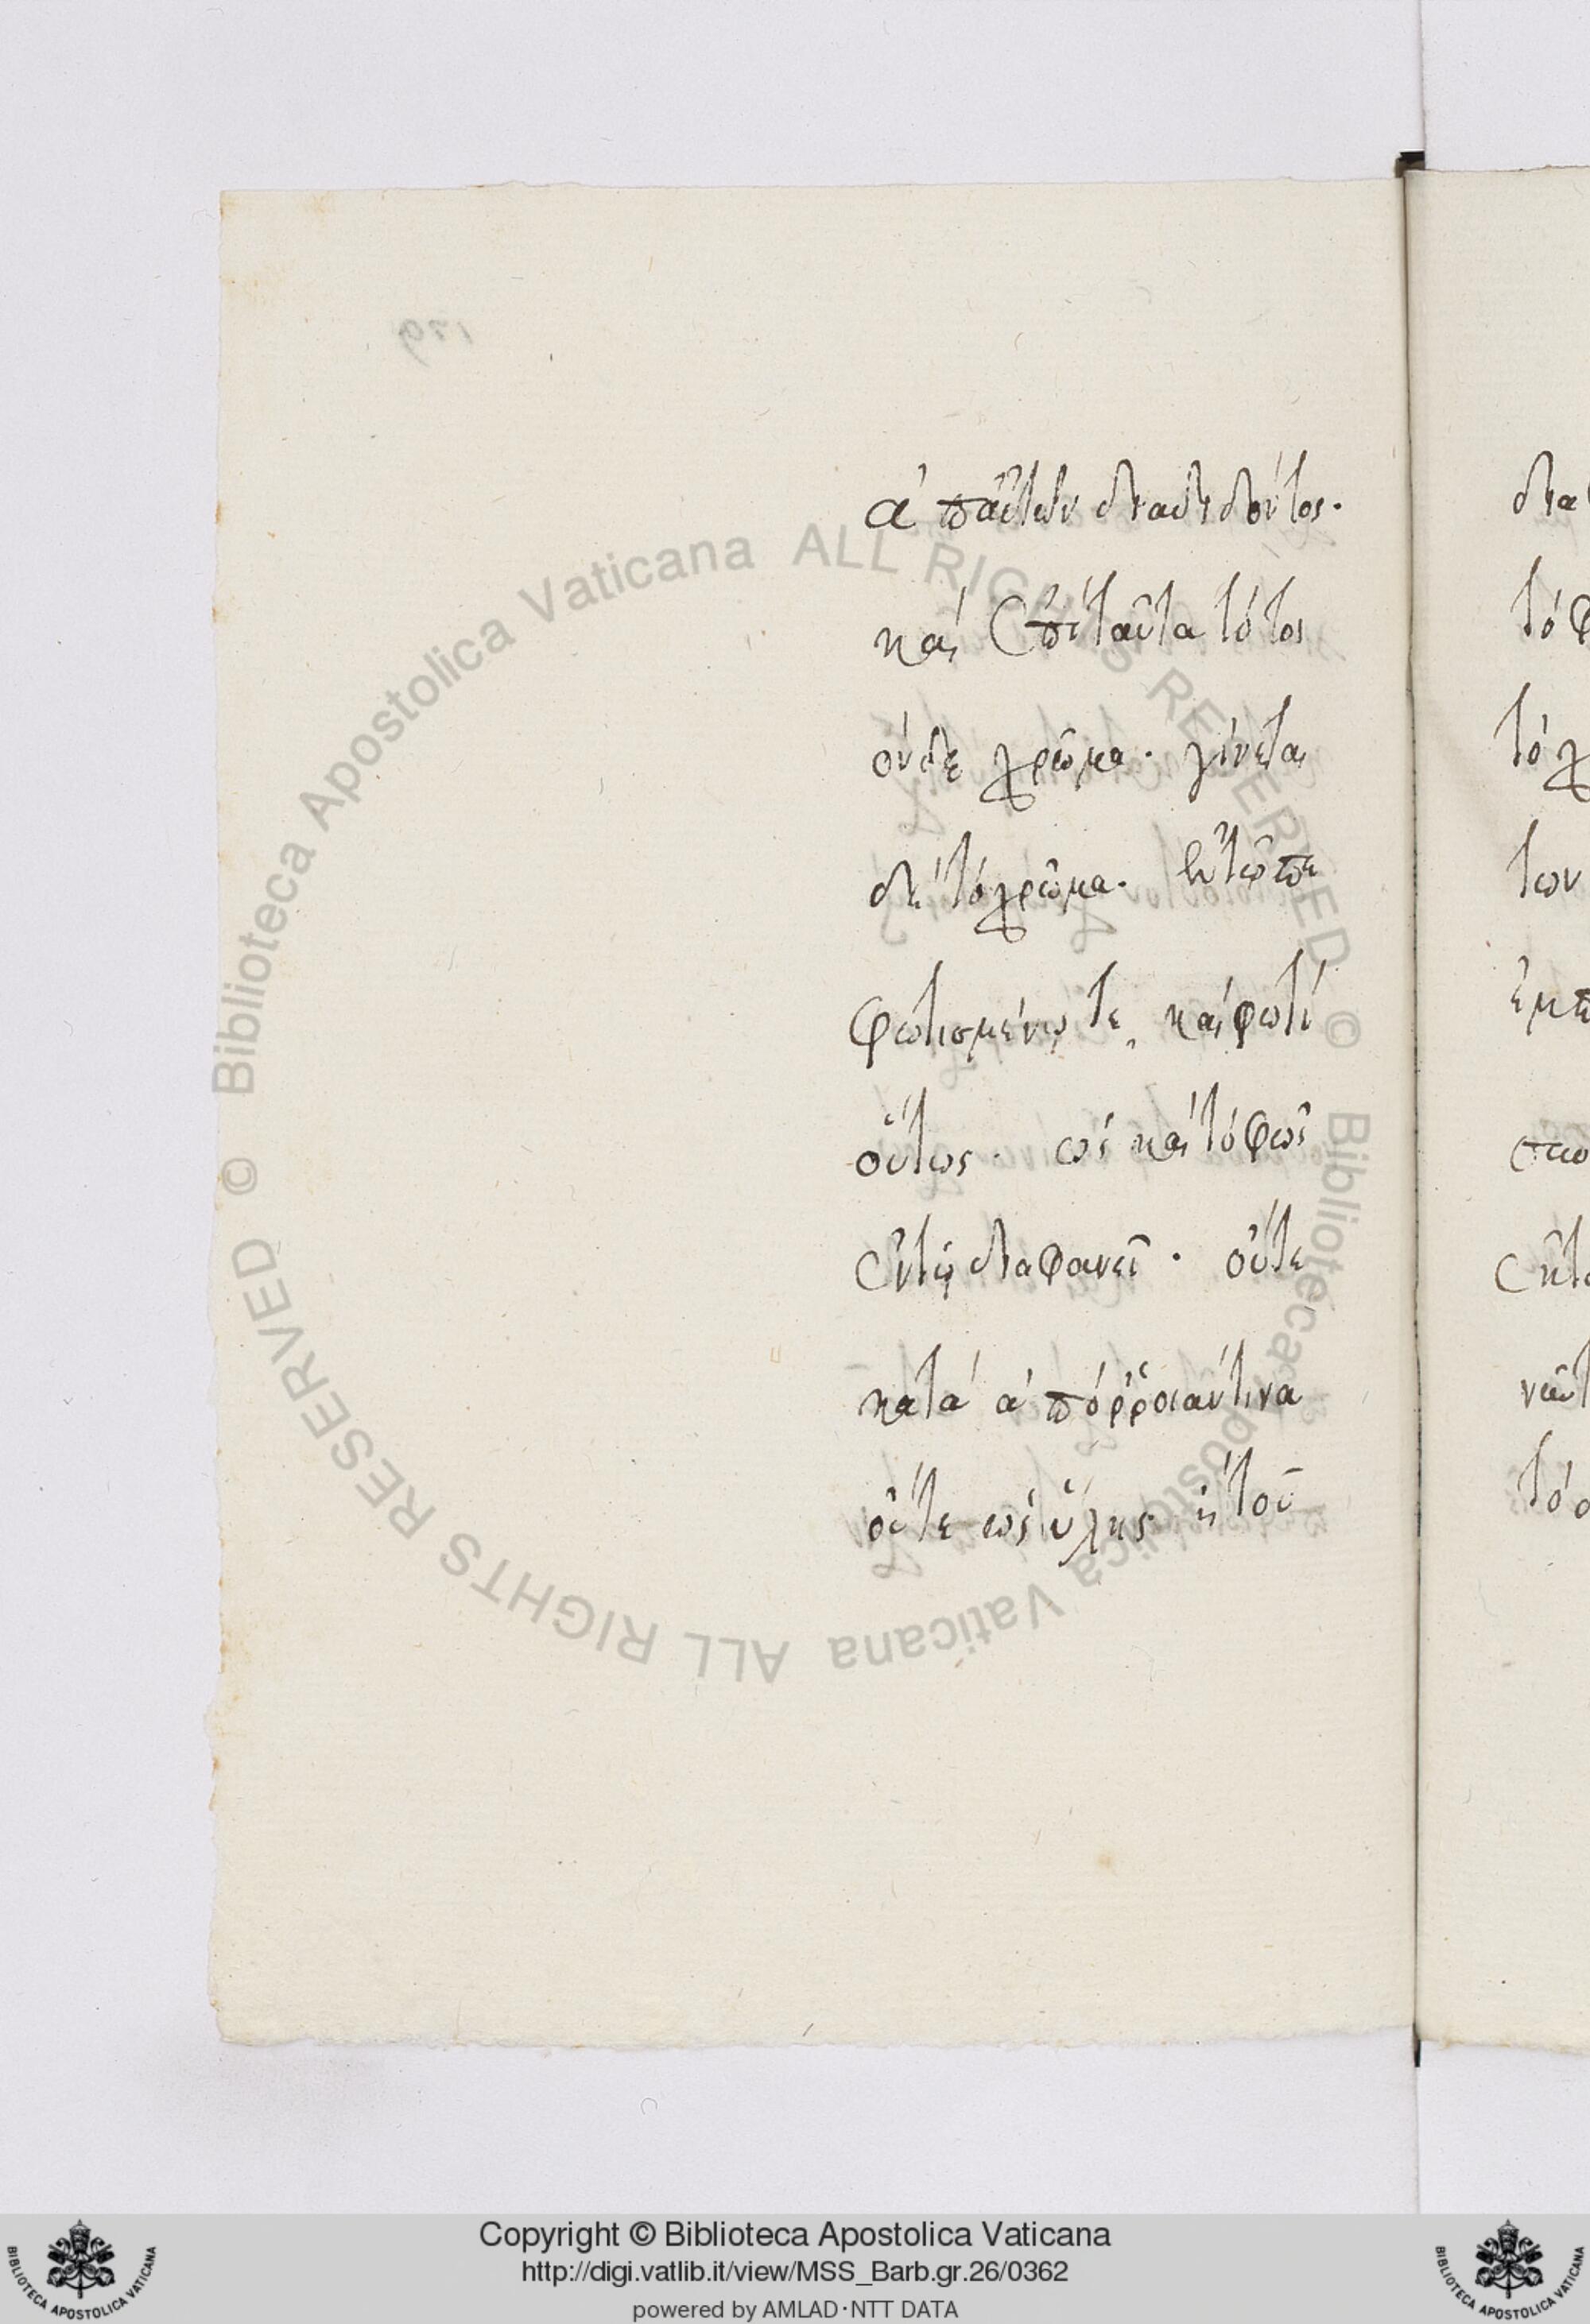 ἀπ' αὐτῶν διαδιδόντος.
καὶ ἐπὶ ταῦτα τό τοι
οὐδὲ χρῶμα. γίνεται
δὲ τὸ χρῶμα. ἐν τῶ πε
φωτισμένω τε, καὶ φωτὶ
οὕτως. ὡς καὶ τὸ φῶς
ἐν τῷ διαφανεῖ. οὔτε
κατὰ ἀπόῤῥοιάν τινα
οὔτε ὡς ὕλης ἢ τοῦ
δια
τὸ φ
τὸ χ
των
ἐμπ
τὸ σ
Biblioteca Apostolica Vaticana ALL RIGHTS RESERVED © Biblioteca Apostolica Vaticana ALL RIGHTS RESERVED ©
Copyright © Biblioteca Apostolica Vaticana
http://digi.vatlib.it/view/MSS_Barb.gr.26/0362
powered by AMLAD·NTT DATA
BIBLIOTECA APOSTOLICA VATICANA
BIBLIOTECA APOSTOLICA VATICANA